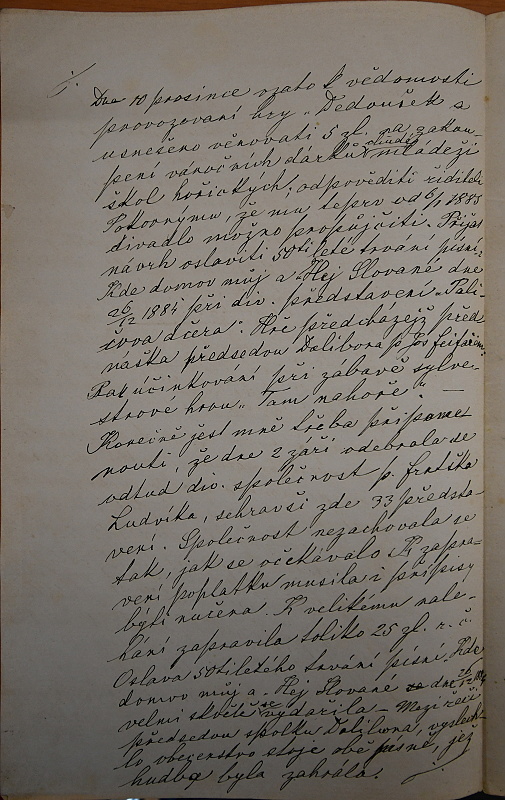 Dne 10 prosince vzato k vědomosti
provozování hry „Dedoušek a
usnešeno věnovati 5 zl. na zakou-
pení vánočních dárků chudé mládeži
škol hořických; odpověditi řediteli
Pokornýmu, že mu teprv od 6/1 1885
divadlo možno propůjčiti. Přijat
návrh oslaviti 50tileté trvání písní:
Kde domov můj a „Hej Slované dne
26/12 1884 při div. představení „Pali-
čova dcera". Hře předcházejž před-
náška předsedou Dalibora p. Jos
Pak účinkování při zábavě sylve-
strové hrou „Tam nahoře". —
Konečně jest mně třeba připome-
nouti, že dne 2 září odebrala se
odtud div. společnost p. Frntška
Ludvíka, sehravši zde 33 představ-
vení. Společnost nezachovala se
tak, jak se očekávalo. K zapra-
vení poplatku musila i přípisy
býti nucena. K velikému nale-
hání zapravila toliko 25 zl. r. č.
Oslava 50tiletého trvání písní „Kde
domov můj a „Hej Slované dne 26/12 1884
velmi skvěle se vydařila. — Mezi řečí
předsedou spolku Dalibora, vyslech-
lo obecenstvo stoje obě písně, jež
hudba byla zahrála.